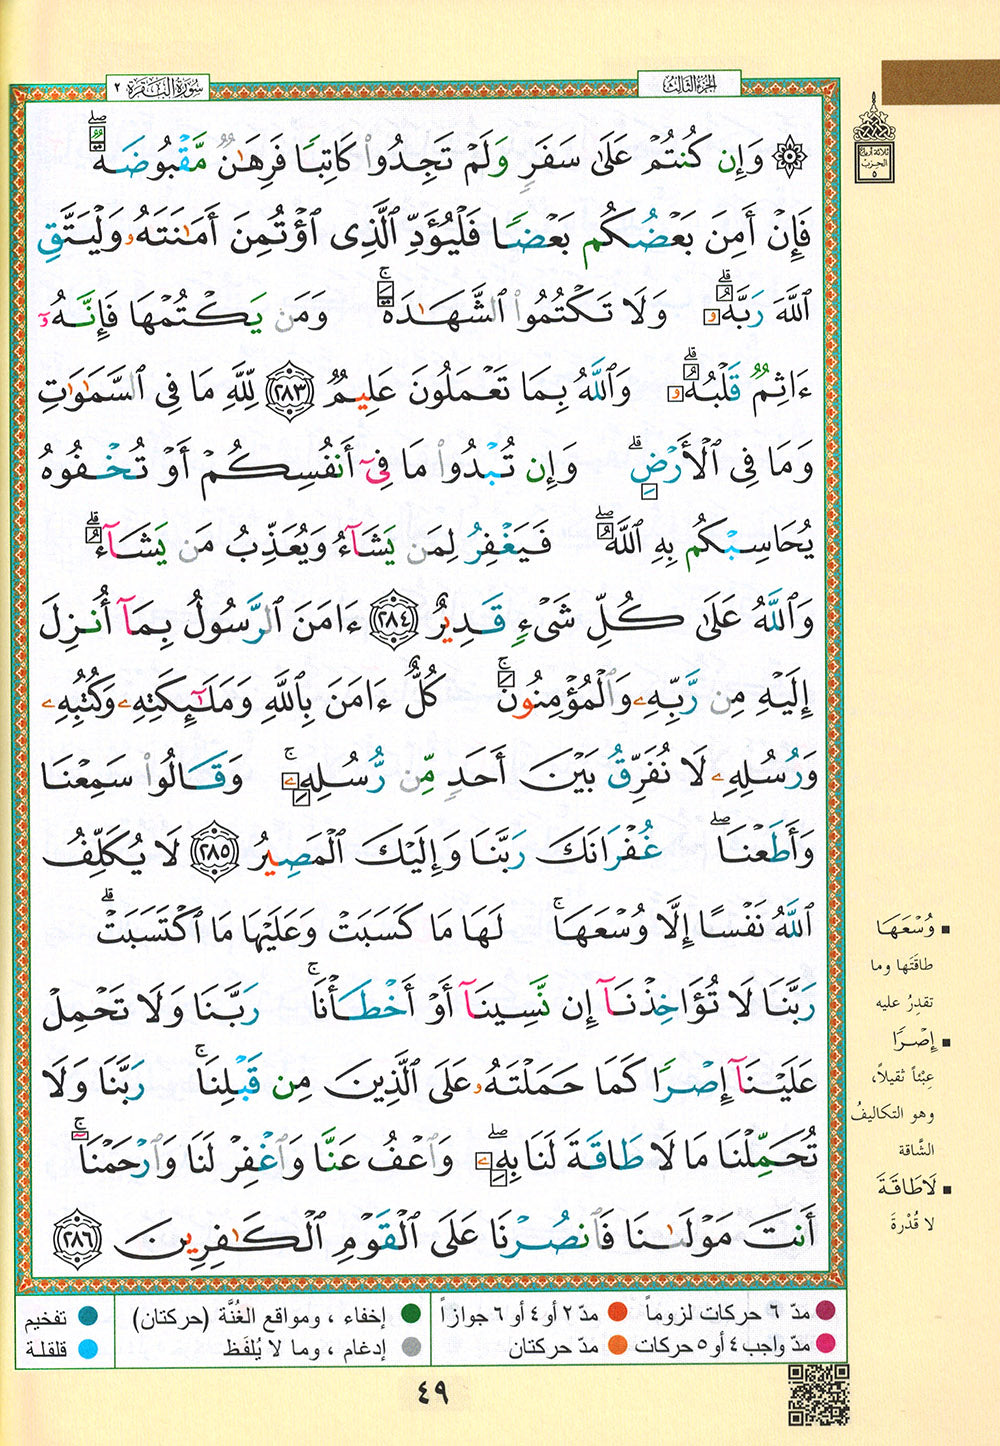 سُورَةُ البَقَرَةِ ٢
الجُزْءُ الثَّالِثُ
ثلاثة أرباع الحزب ٥
۞ وَإِن كُنتُمْ عَلَىٰ سَفَرٍ وَلَمْ تَجِدُوا۟ كَاتِبًا فَرِهَـٰنٌ مَّقْبُوضَةٌ ۖ
فَإِنْ أَمِنَ بَعْضُكُم بَعْضًا فَلْيُؤَدِّ ٱلَّذِى ٱؤْتُمِنَ أَمَـٰنَتَهُۥ وَلْيَتَّقِ
ٱللَّهَ رَبَّهُۥ ۗ وَلَا تَكْتُمُوا۟ ٱلشَّهَـٰدَةَ ۚ وَمَن يَكْتُمْهَا فَإِنَّهُۥٓ
ءَاثِمٌ قَلْبُهُۥ ۗ وَٱللَّهُ بِمَا تَعْمَلُونَ عَلِيمٌ ٢٨٣ لِّلَّهِ مَا فِى ٱلسَّمَـٰوَٰتِ
وَمَا فِى ٱلْأَرْضِ ۗ وَإِن تُبْدُوا۟ مَا فِىٓ أَنفُسِكُمْ أَوْ تُخْفُوهُ
يُحَاسِبْكُم بِهِ ٱللَّهُ ۖ فَيَغْفِرُ لِمَن يَشَآءُ وَيُعَذِّبُ مَن يَشَآءُ ۗ
وَٱللَّهُ عَلَىٰ كُلِّ شَىْءٍ قَدِيرٌ ٢٨٤ ءَامَنَ ٱلرَّسُولُ بِمَآ أُنزِلَ
إِلَيْهِ مِن رَّبِّهِۦ وَٱلْمُؤْمِنُونَ ۚ كُلٌّ ءَامَنَ بِٱللَّهِ وَمَلَـٰٓئِكَتِهِۦ وَكُتُبِهِۦ
وَرُسُلِهِۦ لَا نُفَرِّقُ بَيْنَ أَحَدٍ مِّن رُّسُلِهِۦ ۚ وَقَالُوا۟ سَمِعْنَا
وَأَطَعْنَا ۖ غُفْرَانَكَ رَبَّنَا وَإِلَيْكَ ٱلْمَصِيرُ ٢٨٥ لَا يُكَلِّفُ
ٱللَّهُ نَفْسًا إِلَّا وُسْعَهَا ۚ لَهَا مَا كَسَبَتْ وَعَلَيْهَا مَا ٱكْتَسَبَتْ ۗ
رَبَّنَا لَا تُؤَاخِذْنَآ إِن نَّسِينَآ أَوْ أَخْطَأْنَا ۚ رَبَّنَا وَلَا تَحْمِلْ
عَلَيْنَآ إِصْرًا كَمَا حَمَلْتَهُۥ عَلَى ٱلَّذِينَ مِن قَبْلِنَا ۚ رَبَّنَا وَلَا
تُحَمِّلْنَا مَا لَا طَاقَةَ لَنَا بِهِۦ ۖ وَٱعْفُ عَنَّا وَٱغْفِرْ لَنَا وَٱرْحَمْنَآ ۚ
أَنتَ مَوْلَىٰنَا فَٱنصُرْنَا عَلَى ٱلْقَوْمِ ٱلْكَـٰفِرِينَ ٢٨٦
▪ وُسْعَهَا
طاقَتَها وما
تقدِرُ عليه
▪ إِصْرًا
عِبْئاً ثقيلاً،
وهو التكاليفُ
الشَّاقة
▪ لَا طَاقَةَ
لا قُدْرةَ
مدّ ٦ حركات لزوماً ● مدّ ٢ أو ٤ أو ٦ جوازاً ● إخفاء ، ومواقع الغُنَّة (حركتان) ● تفخيم ●
مدّ واجب ٤ أو ٥ حركات ● مدّ حركتان ● إدغام ، وما لا يُلفَظ ● قلقلة ●
٤٩